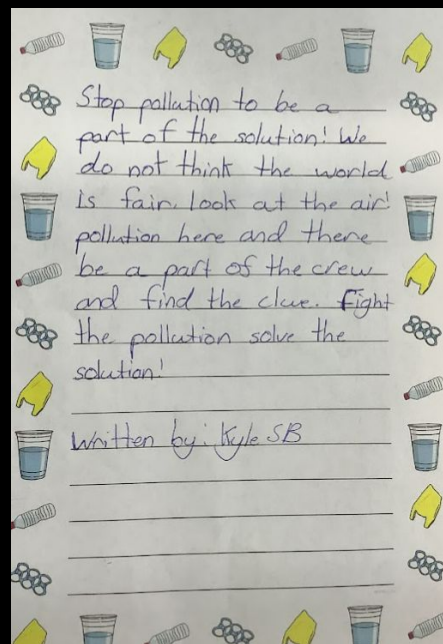 Stop pollution to be a
part of the solution! We
do not think the world
is fair. look at the air!
pollution here and there
be a part of the crew
and find the clue. Fight
the pollution solve the
solution!
Written by: Kyle SB